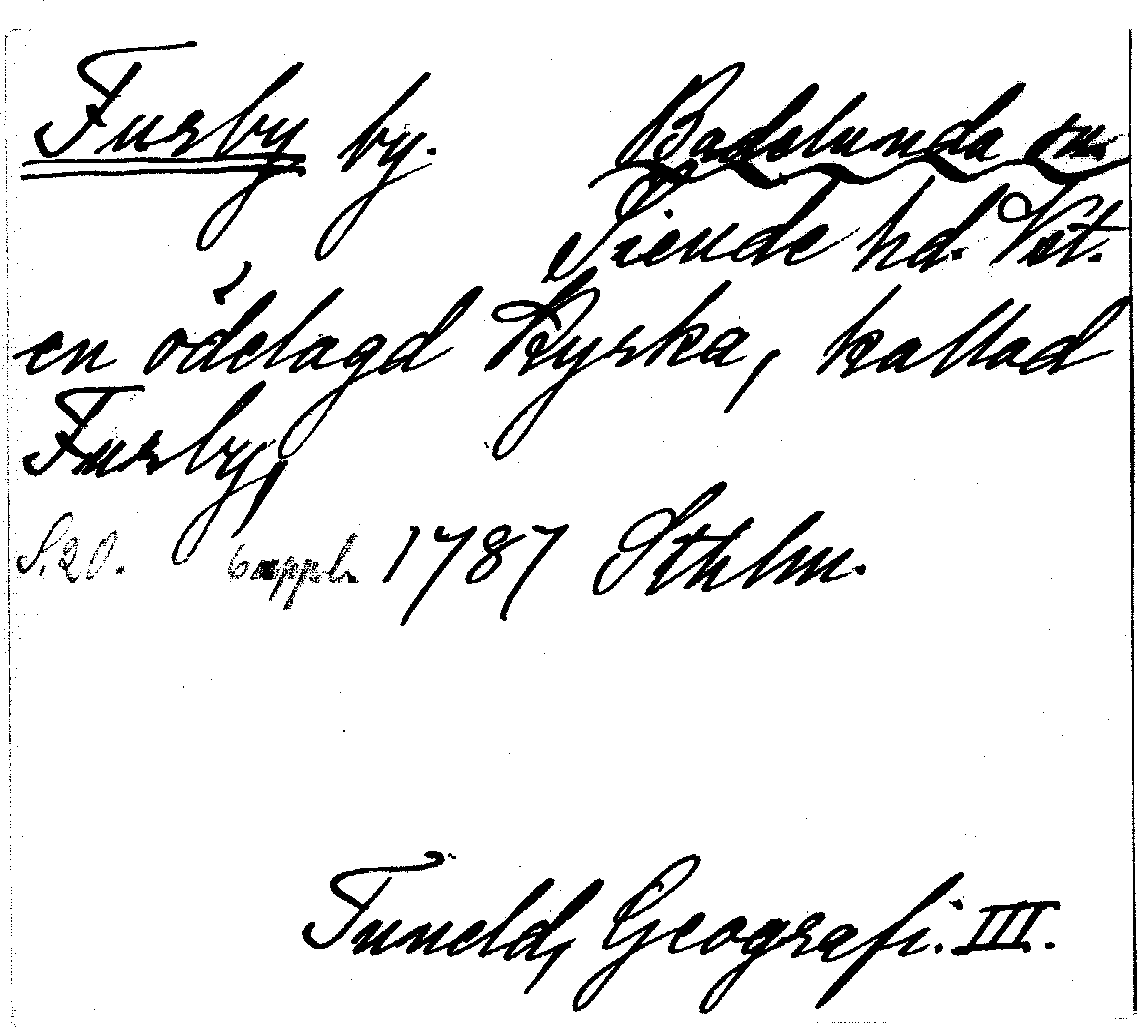 Furby by. Badelunda sn.
Siende hd. Vst.
en ödelagd Kyrka, kallad
Furby,
S. 20. 6 uppl. 1787 Sthlm.
Tuneld, Geografi. III.